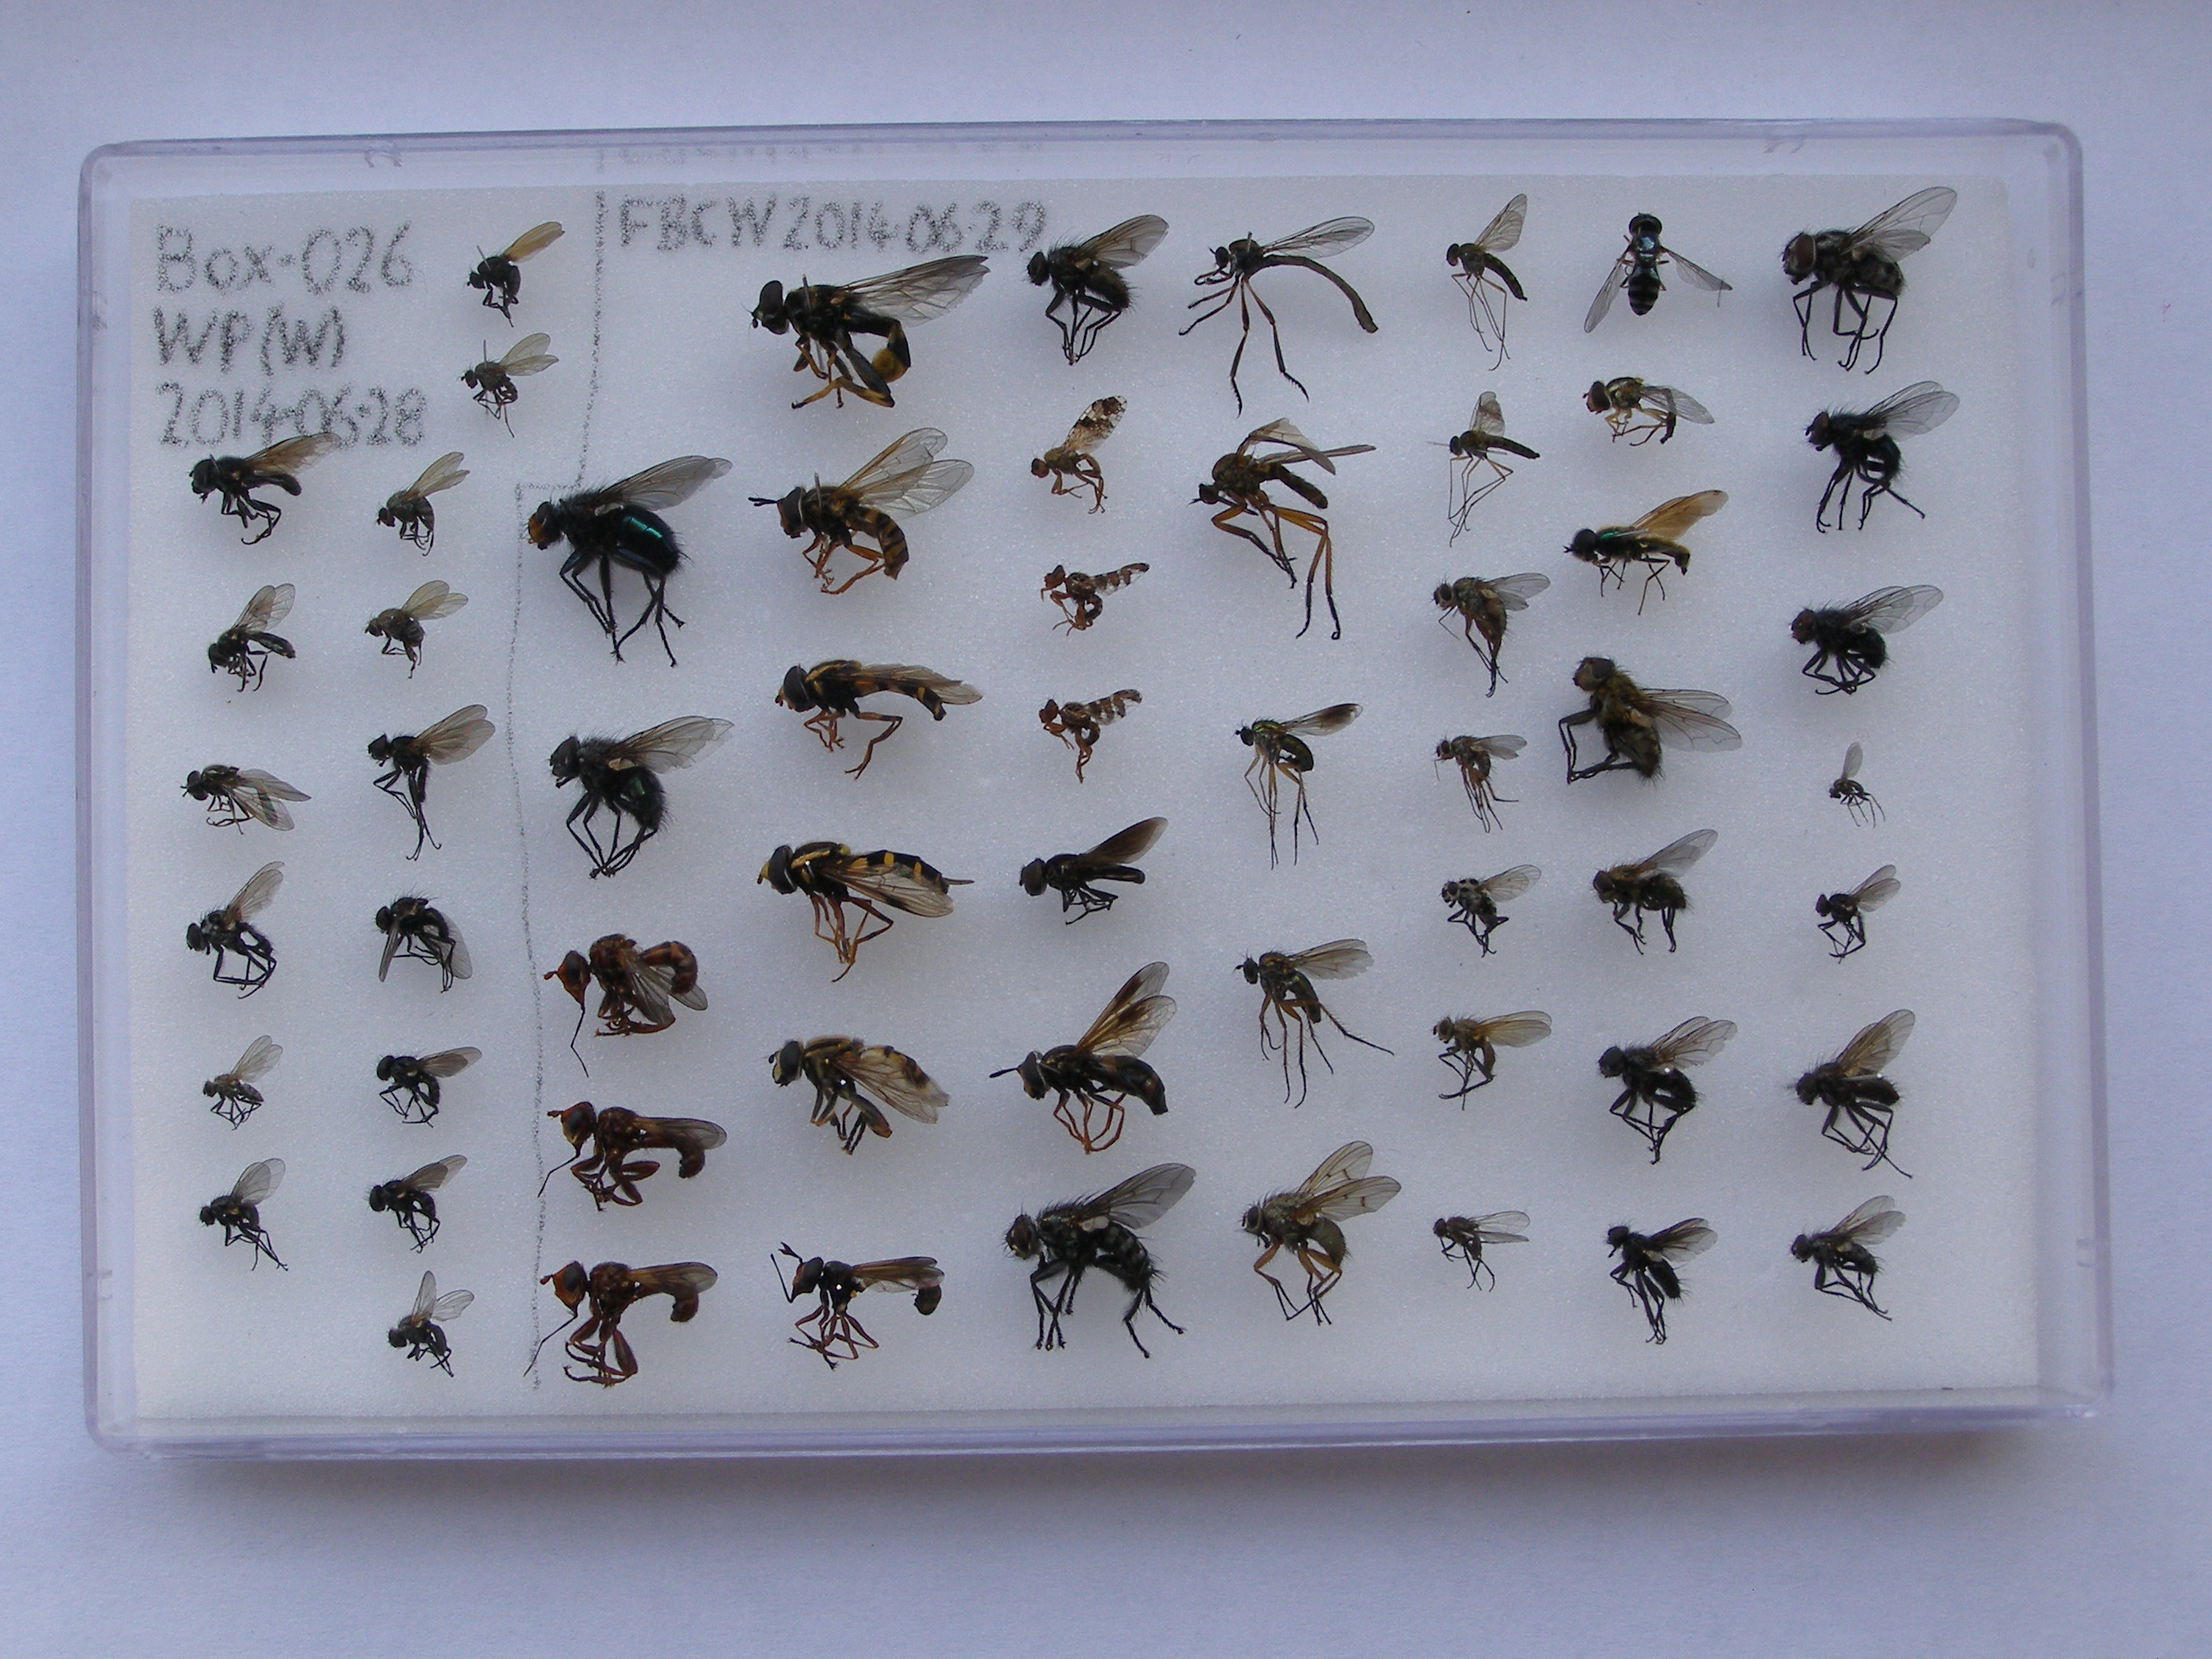 Box-026
WP(W)
2014-06-28
FBCW 2014-06-29